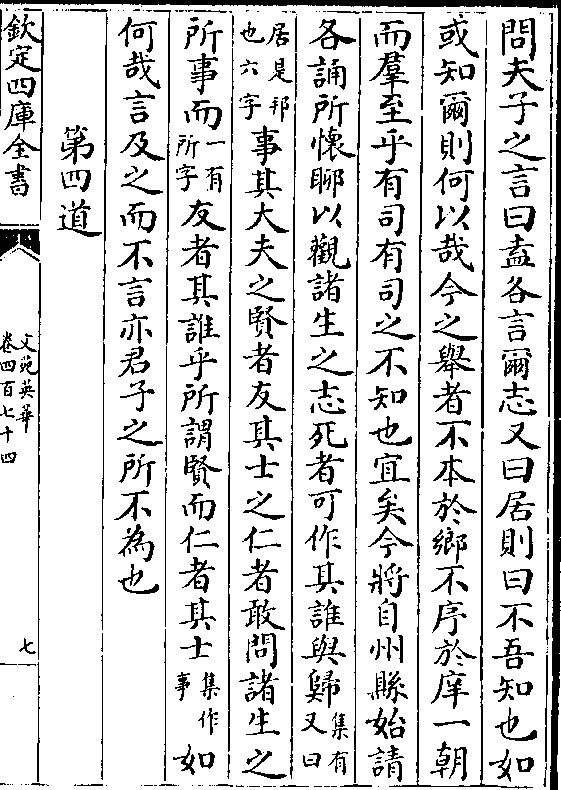 問夫子之言曰盍各言爾志又曰居則曰不吾知也如
或知爾則何以哉今之舉者不本於鄉不序於庠一朝
而羣至乎有司有司之不知也宜矣今將自州縣始請
各誦所懷聊以觀諸生之志死者可作其誰與歸集有又曰
居是邦也六字事其大夫之賢者友其士之仁者敢問諸生之
所事而一有所字友者其誰乎所謂賢而仁者其士集作事如
何哉言及之而不言亦君子之所不為也
第四道
欽定四庫全書
文苑英華
卷四百七十四
七